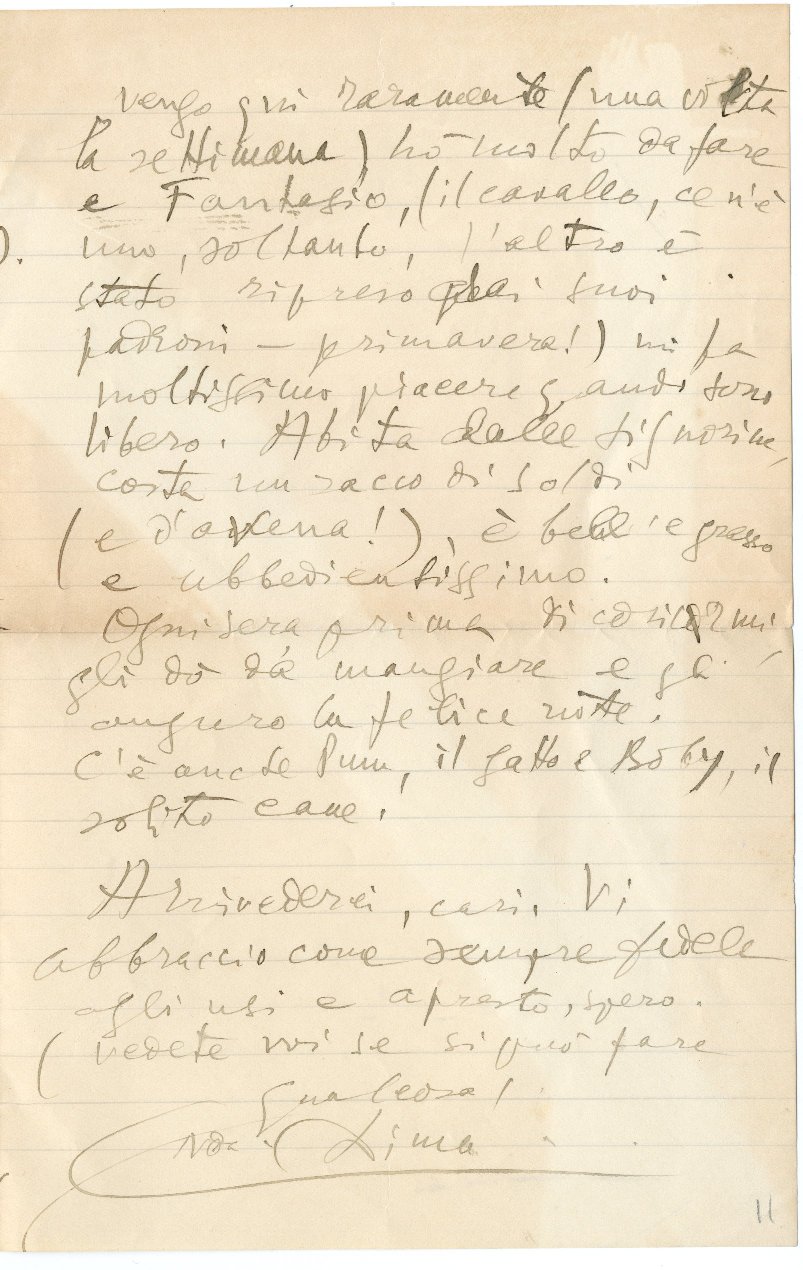 vengo qui raramente (una volta
la settimana) hò molto da fare
e Fantasio, (il cavallo, ce n'è
uno, soltanto, l'altro è
stato ripreso dai suoi
padroni — primavera!) mi fa
moltissimo piacere quando sono
libero. Abita dalle signorine,
costa un sacco di soldi
(e d'avena!), è bello e grasso
e ubbedientissimo.
Ogni sera prima di coricarmi
gli dò dà mangiare e gli
auguro la felice notte.
C'è anche Pum, il gatto e Boby, il
solito cane.
Arrivederci, cari. Vi
abbraccio come sempre fedele
agli usi e a presto, spero.
(vedete voi se si può fare
qualcosa)
Lima
11